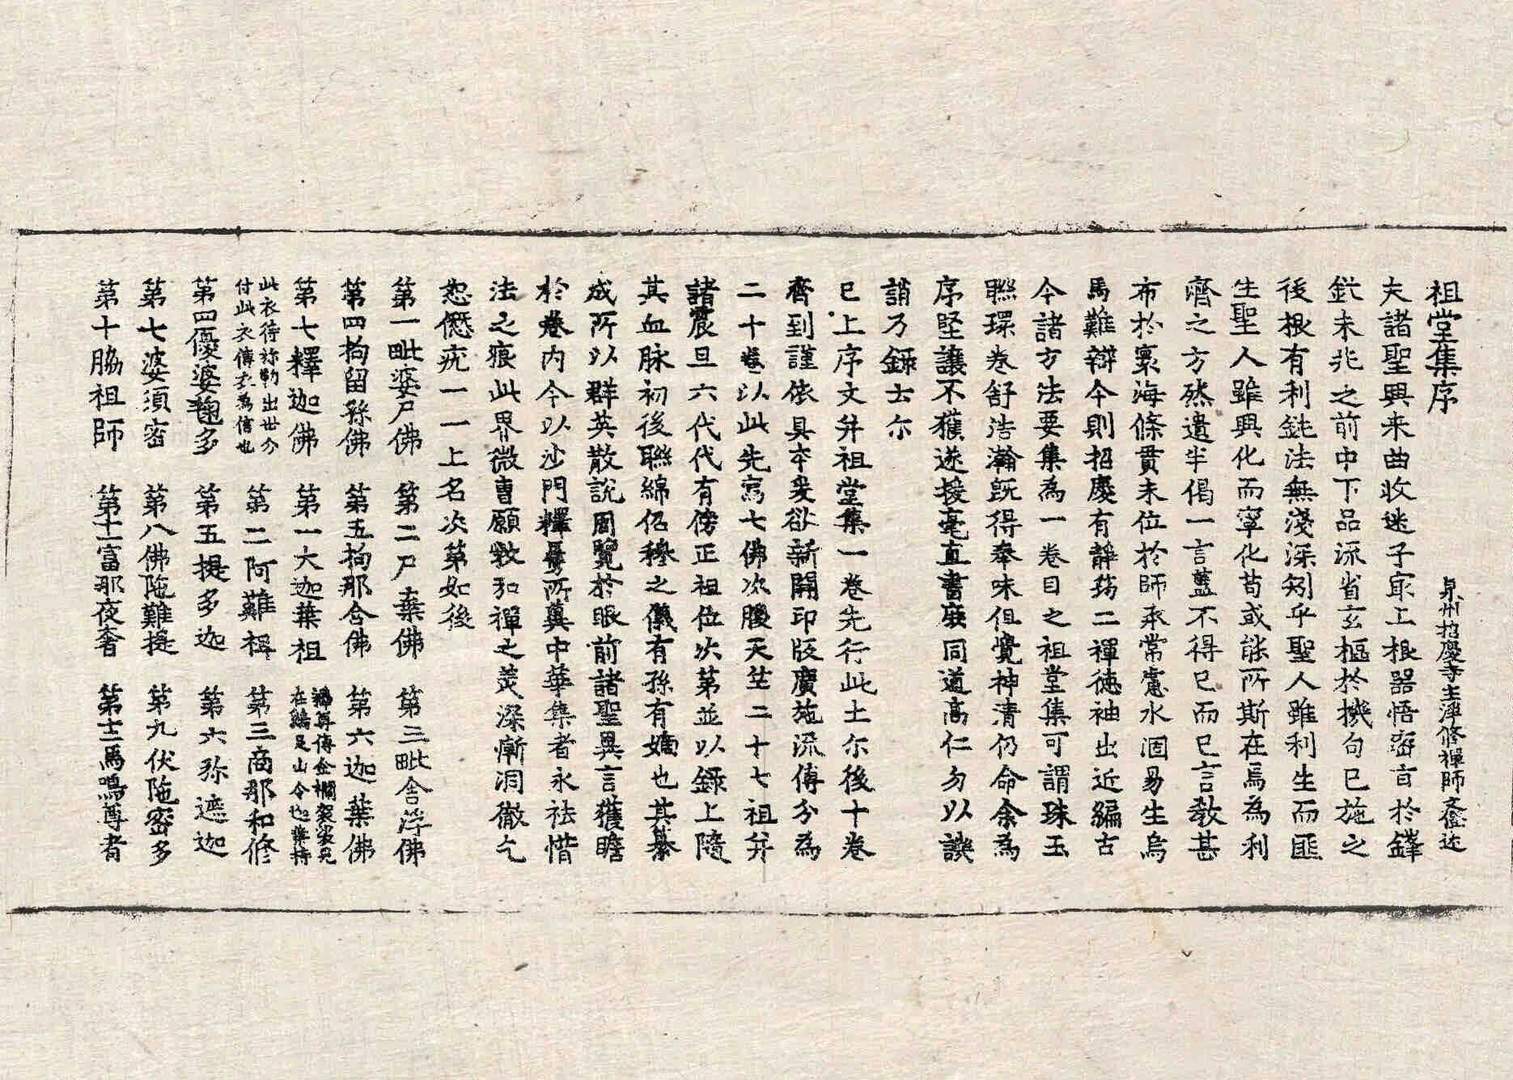 祖堂集序
泉州招慶寺主淨修禪師文僜述
夫諸聖興来曲收迷子最上根器悟密旨於鋒
鋩未兆之前中下品流省玄樞於機句已施之
後根有利鈍法無淺深矧乎聖人雖利生而匪
生聖人雖興化而寧化苟或能所斯在焉為利
濟之方然遺半偈一言蓋不得已而已言教甚
布於寰海條貫未位於師承常慮水涸易生烏
馬難辯今則招慶有靜筠二禪德袖出近編古
今諸方法要集為一卷目之祖堂集可謂珠玉
聮環卷舒浩瀚既得奉味但覺神清仍命余為
序堅讓不獲遂援毫直書庶同道高仁勿以譏
誚乃錄云尔
已上序文并祖堂集一卷先行此土尔後十卷
齊到謹依具本爰欲新開印版廣施流傳分為
二十卷以此先寫七佛次朘天竺二十七祖并
諸震旦六代代有傍正祖位次第並以錄上隨
其血脉初後聯綿佋穆之儀有孫有嫡也其纂
成所以群英散說周覽於眼前諸聖異言獲瞻
於卷内今以沙門釋匡儁所冀中華集者永祛惜
法之痕此界微曹願敉和禪之美深慚洞徹乞
恕僽疣一一上名次第如後
第一毗婆尸佛 第二尸棄佛 第三毗舍浮佛
第四拘留孫佛 第五拘那含佛 第六迦葉佛
第七釋迦佛 第一大迦葉祖
在鷄足山今也葉持
此衣待弥勒出世分
付此衣傳表為信也
第二阿難祖 第三商那和修
第四優婆毱多 第五提多迦 第六弥遮迦
第七婆須密 第八佛陁難提 第九伏陁密多
第十脇祖師 第十一富那夜奢 第十二馬鳴尊者